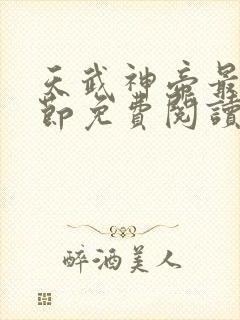 天武神帝最
節免費閱讀
醉酒美人